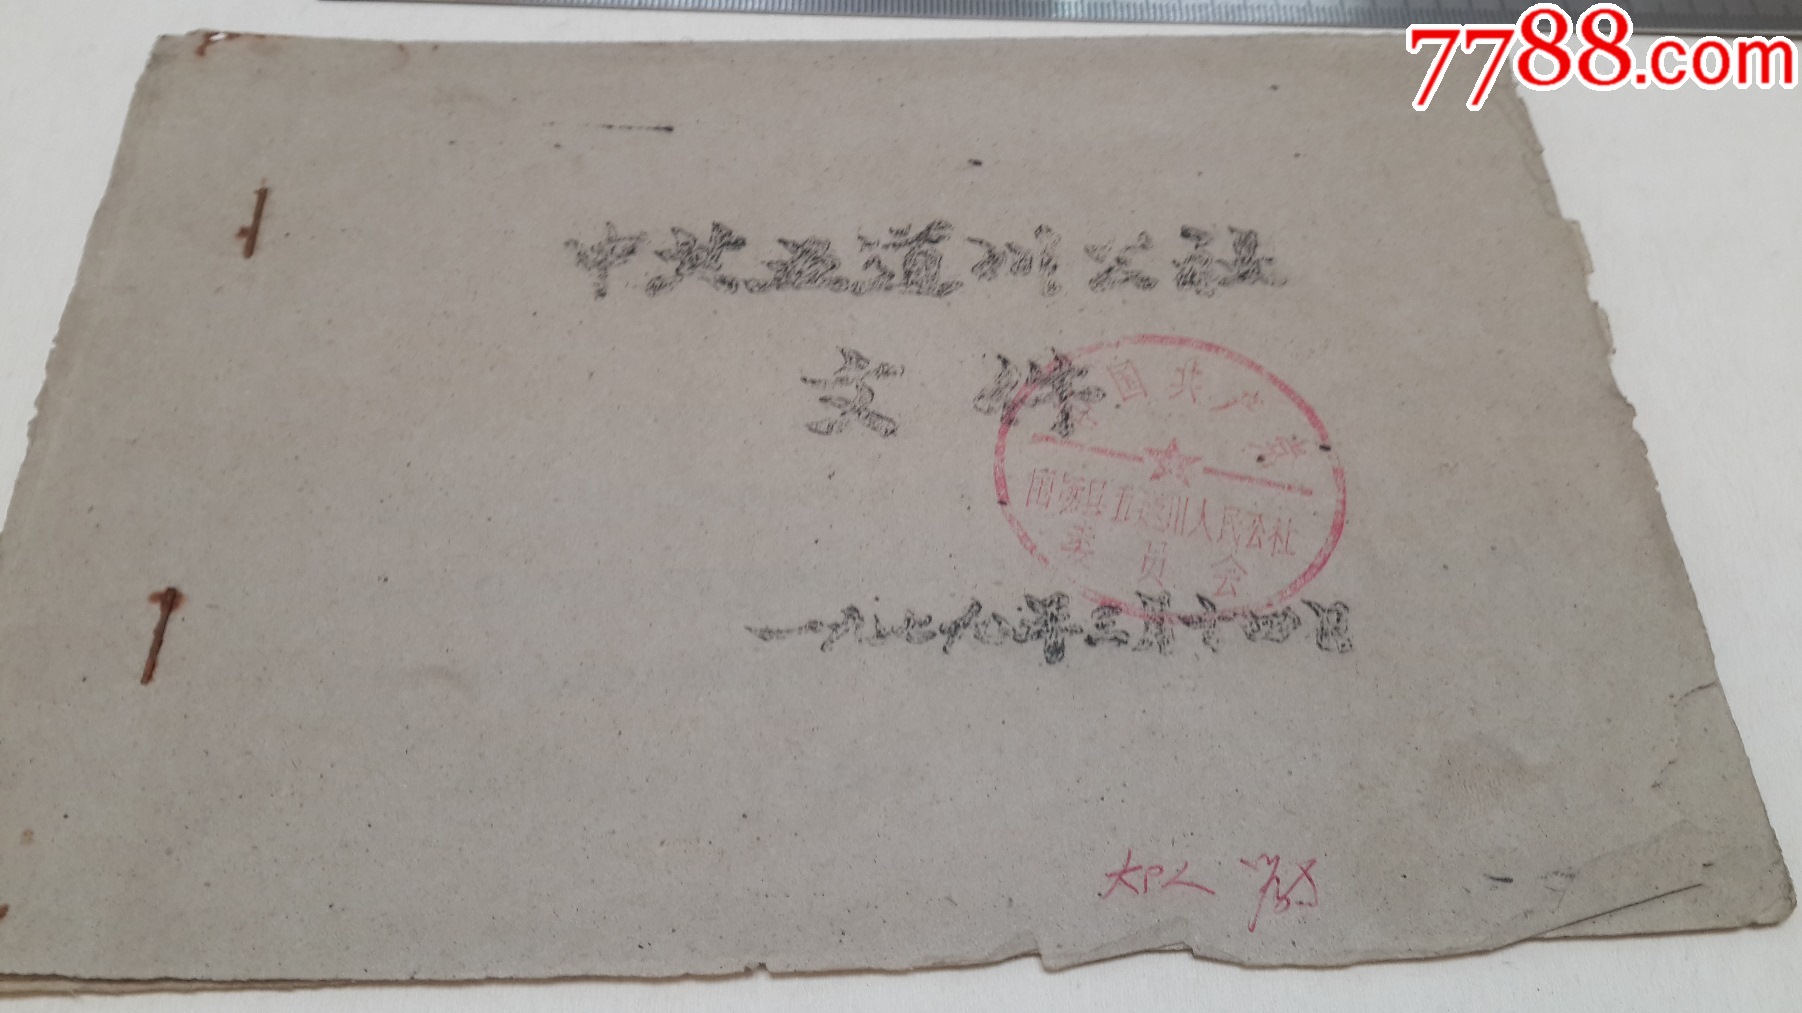 7788.com
中共五道川公社
文件
中国共产党
固阳县五道川人民公社
委员会
一九七九年三月十四日
大队